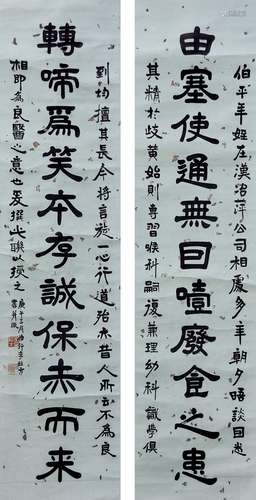 伯平 姪在漢冶萍公司相處多年朝夕晤談
由塞使通無曰噎廢食之患
其精於歧黄始則專習喉科嗣復兼理幼科識學俱
到均擅其長今將言旋一心行道殆亦昔人所云不為良
轉啼爲笑本存誠保赤而来
相即為良醫之意也爰撰此聯以授之
庚午三月